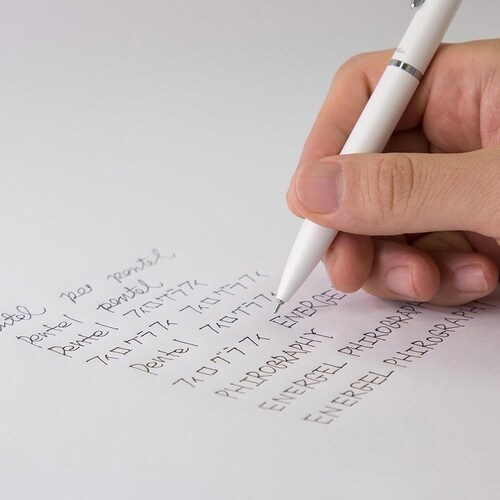 per pentel
Pentel pentel
Pentel フィログラフィ
フィログラフィ フィログラフィ
Pentel フィログラフィ
フィログラフィ ENERGEL
PHIROGRAPHY
ENERGEL PHIROGRAPHY
ENERGEL PHIROGRAPHY